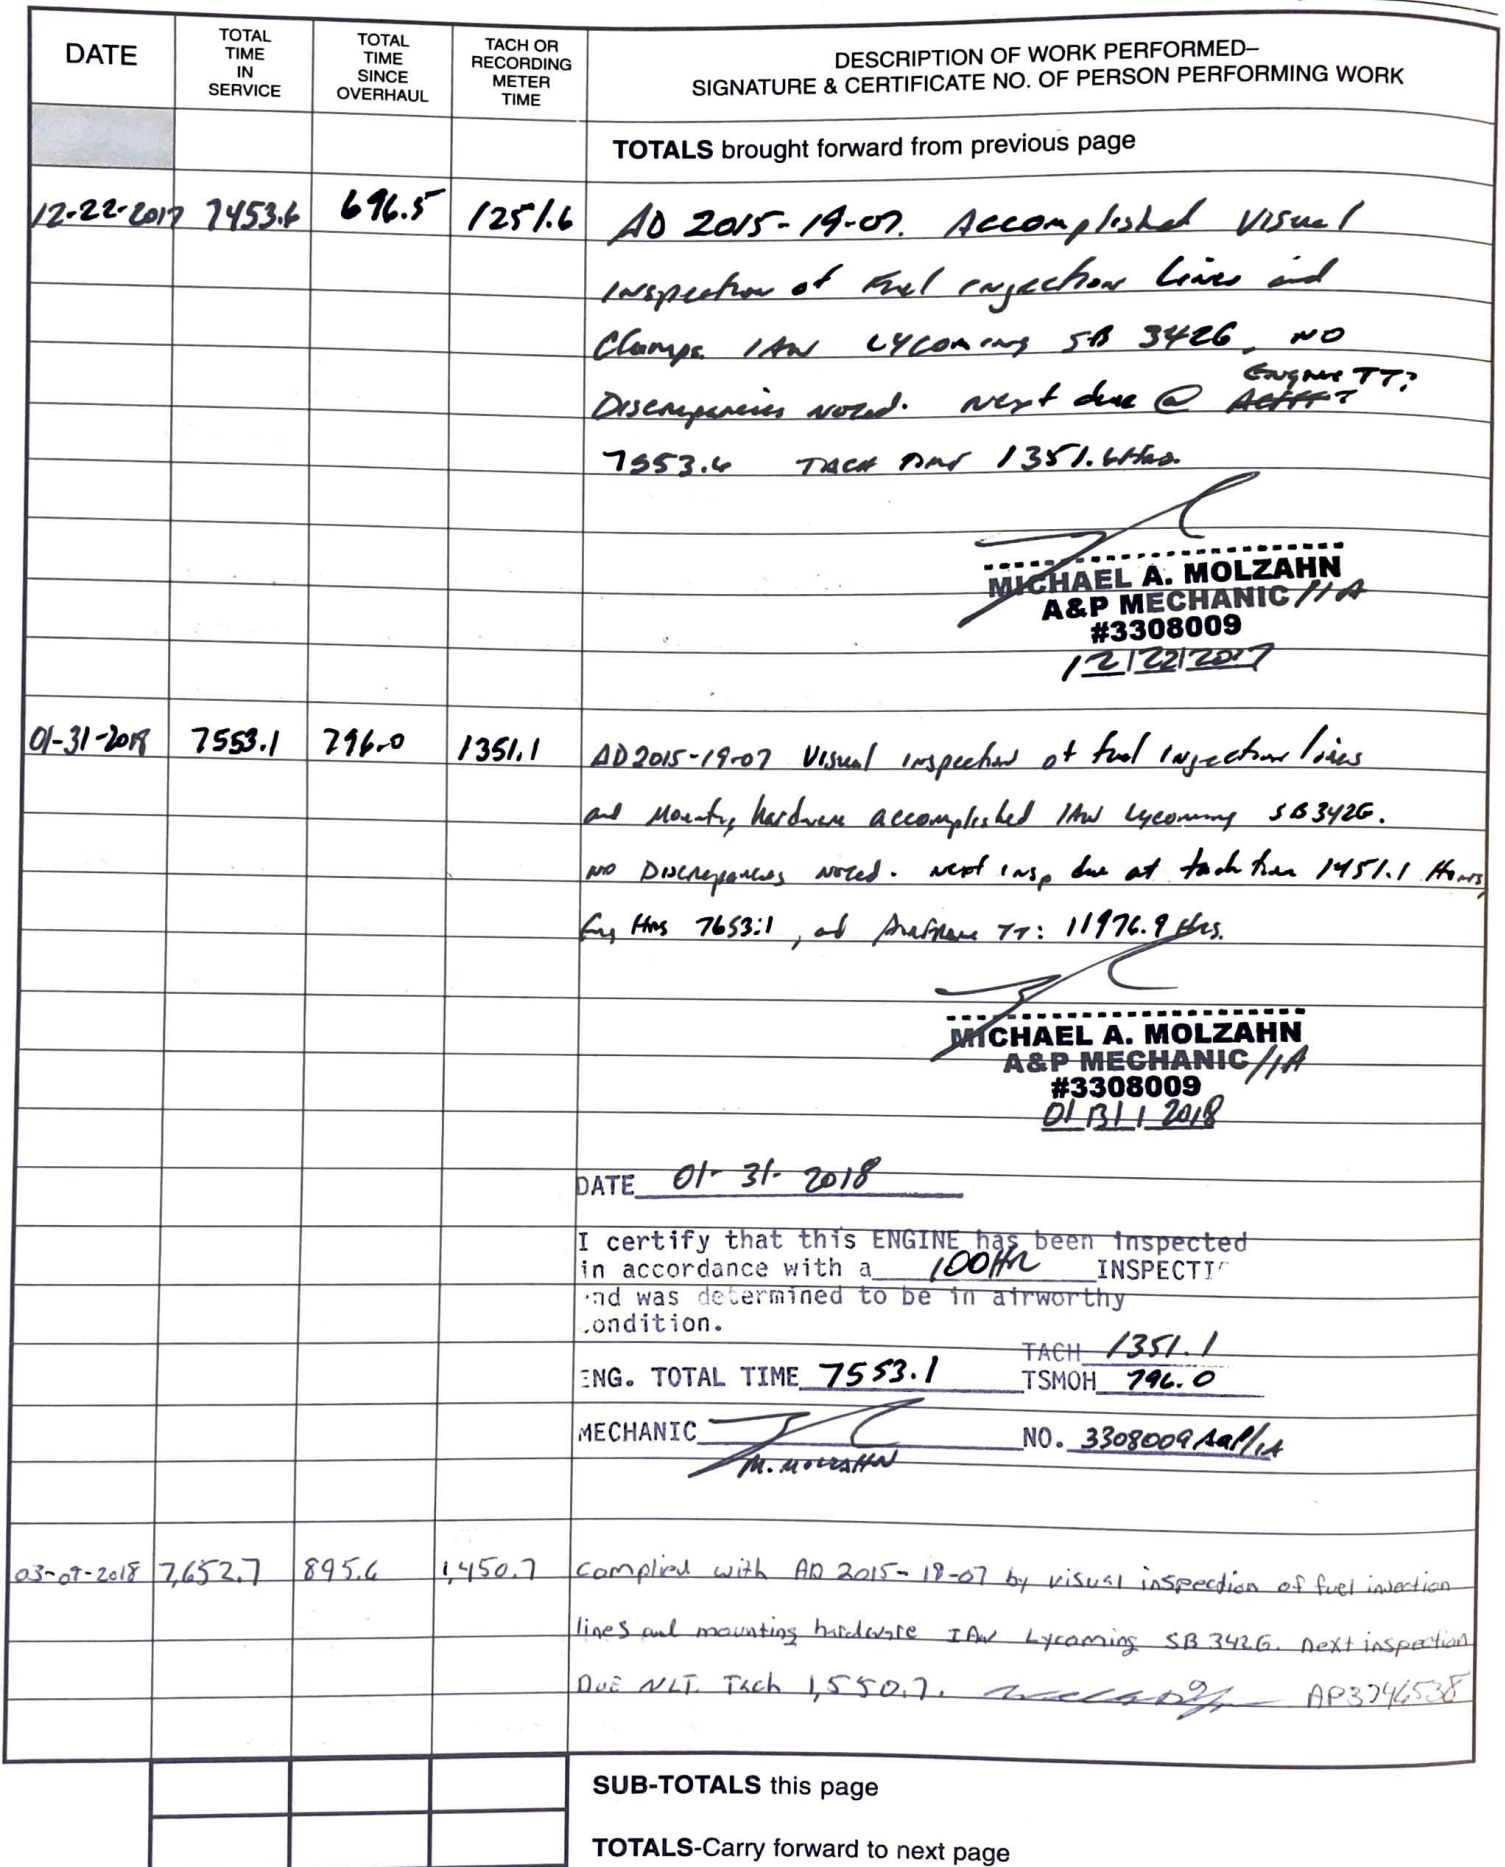 DATE
TOTAL TIME IN SERVICE
TOTAL TIME SINCE OVERHAUL
TACH OR RECORDING METER TIME
DESCRIPTION OF WORK PERFORMED–
SIGNATURE & CERTIFICATE NO. OF PERSON PERFORMING WORK
TOTALS brought forward from previous page
12-22-2017 7453.6 696.5 1251.6 AD 2015-19-07. Accomplished Visual
Inspection of Fuel injection Lines and
Clamps IAW LYComing SB 342G, NO
Engine TT:
Discrepancies Noted. Next due @
7553.6 TACH Time 1351.6 Hrs.
MICHAEL A. MOLZAHN
A&P MECHANIC /IA
#3308009
12/22/2017
01-31-2018 7553.1 796.0 1351.1 AD 2015-19-07 Visual inspection of fuel injection lines
and Mounting hardware accomplished IAW Lycoming SB 342G.
NO Discrepancies Noted. Next insp due at tach time 1451.1 Hours,
Eng Hrs 7653.1, at Airframe TT: 11976.9 Hrs.
MICHAEL A. MOLZAHN
A&P MECHANIC /IA
#3308009
01/31/2018
DATE 01-31-2018
I certify that this ENGINE has been inspected
in accordance with a 100Hr INSPECTI
nd was determined to be in airworthy
ondition.
TACH 1351.1
ENG. TOTAL TIME 7553.1 TSMOH 796.0
MECHANIC NO. 3308009 A&P/IA
M. MOLZAHN
03-09-2018 7,652.7 895.6 1,450.7 Complied with AD 2015-19-07 by visual inspection of fuel injection
lines and mounting hardware IAW Lycoming SB 342G. Next inspection
DUE NLT. Tach 1,550.7. AP3746538
SUB-TOTALS this page
TOTALS-Carry forward to next page